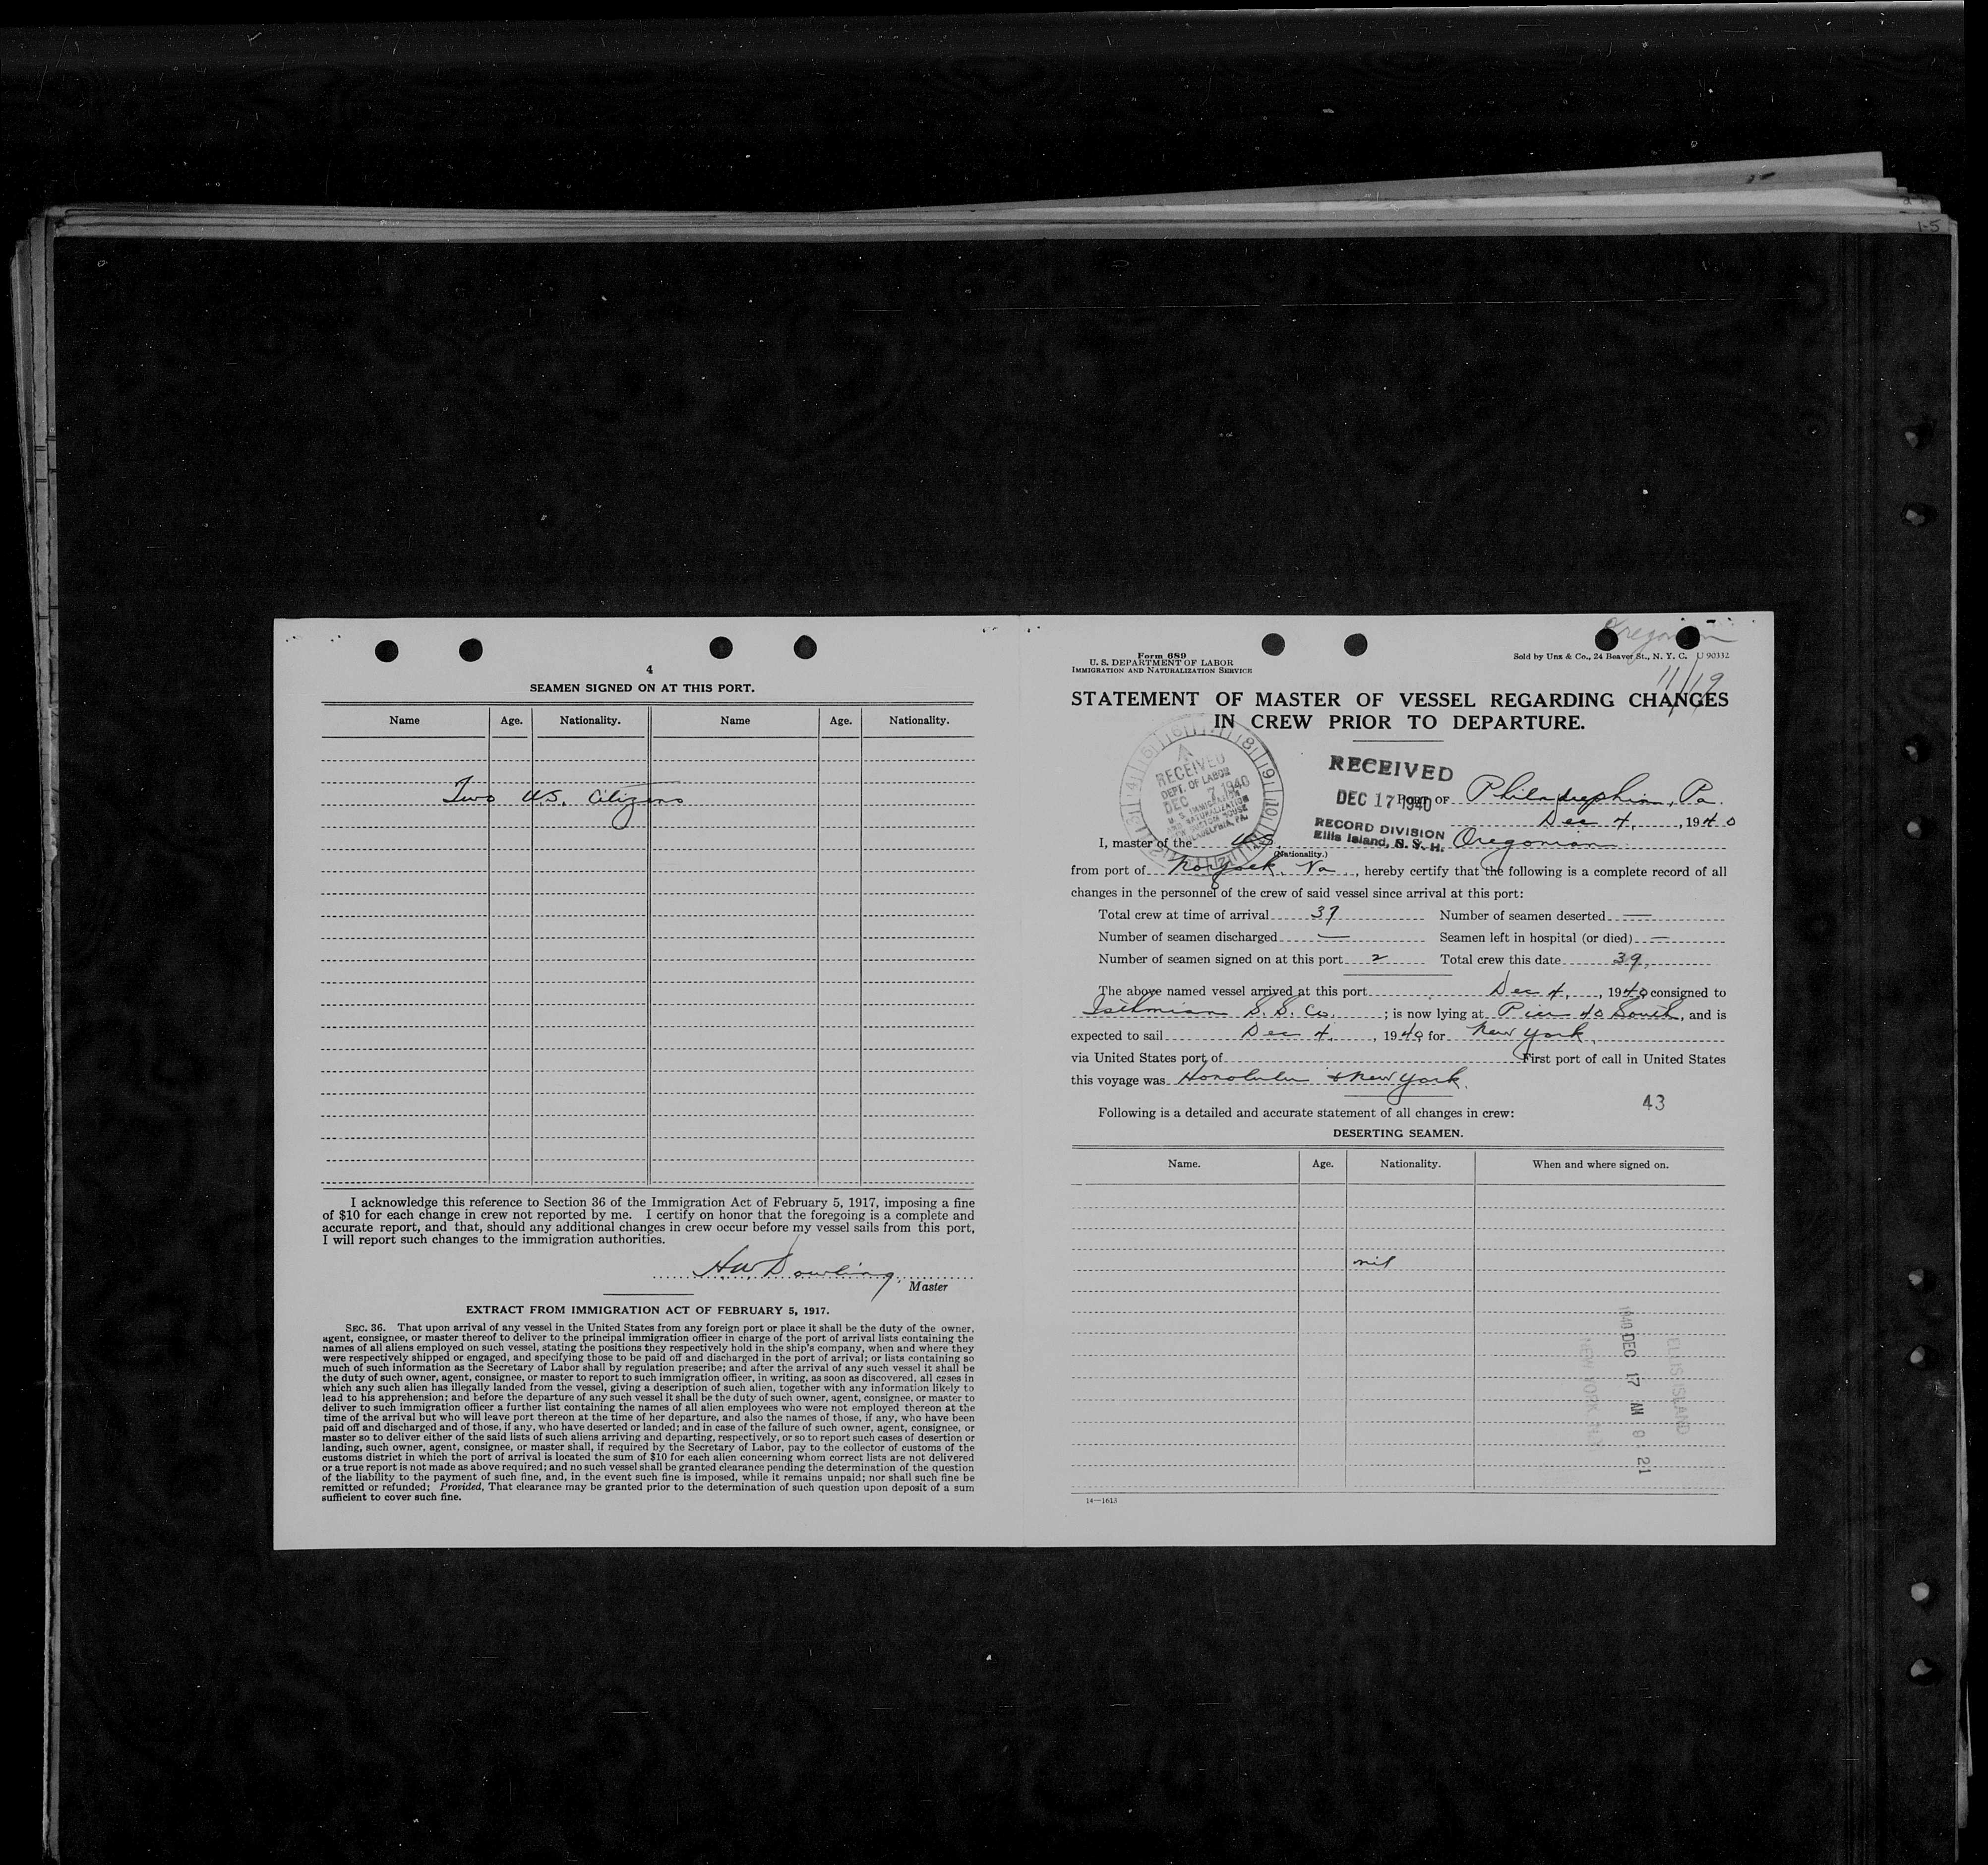 4
SEAMEN SIGNED ON AT THIS PORT.
Name Age. Nationality. Name Age. Nationality.
Two U.S. Citizens
I acknowledge this reference to Section 36 of the Immigration Act of February 5, 1917, imposing a fine
of $10 for each change in crew not reported by me. I certify on honor that the foregoing is a complete and
accurate report, and that, should any additional changes in crew occur before my vessel sails from this port,
I will report such changes to the immigration authorities.
HW Dowling
Master
EXTRACT FROM IMMIGRATION ACT OF FEBRUARY 5, 1917.
SEC. 36. That upon arrival of any vessel in the United States from any foreign port or place it shall be the duty of the owner,
agent, consignee, or master thereof to deliver to the principal immigration officer in charge of the port of arrival lists containing the
names of all aliens employed on such vessel, stating the positions they respectively hold in the ship's company, when and where they
were respectively shipped or engaged, and specifying those to be paid off and discharged in the port of arrival; or lists containing so
much of such information as the Secretary of Labor shall by regulation prescribe; and after the arrival of any such vessel it shall be
the duty of such owner, agent, consignee, or master to report to such immigration officer, in writing, as soon as discovered, all cases in
which any such alien has illegally landed from the vessel, giving a description of such alien, together with any information likely to
lead to his apprehension; and before the departure of any such vessel it shall be the duty of such owner, agent, consignee, or master to
deliver to such immigration officer a further list containing the names of all alien employees who were not employed thereon at the
time of the arrival but who will leave port thereon at the time of her departure, and also the names of those, if any, who have been
paid off and discharged and of those, if any, who have deserted or landed; and in case of the failure of such owner, agent, consignee, or
master so to deliver either of the said lists of such aliens arriving and departing, respectively, or so to report such cases of desertion or
landing, such owner, agent, consignee, or master shall, if required by the Secretary of Labor, pay to the collector of customs of the
customs district in which the port of arrival is located the sum of $10 for each alien concerning whom correct lists are not delivered
or a true report is not made as above required; and no such vessel shall be granted clearance pending the determination of the question
of the liability to the payment of such fine, and, in the event such fine is imposed, while it remains unpaid; nor shall such fine be
remitted or refunded; Provided, That clearance may be granted prior to the determination of such question upon deposit of a sum
sufficient to cover such fine.
Oregonian
Form 689
U. S. DEPARTMENT OF LABOR
IMMIGRATION AND NATURALIZATION SERVICE
Sold by Unz & Co., 24 Beaver St., N. Y. C. U 90332
11/19
STATEMENT OF MASTER OF VESSEL REGARDING CHANGES
IN CREW PRIOR TO DEPARTURE.
RECEIVED
DEPT. OF LABOR
DEC 7 1940
U. S. IMMIGRATION
AND NATURALIZATION
NEW CUSTOM HOUSE
PHILADELPHIA, PA.
RECEIVED
DEC 17 1940
RECORD DIVISION
Ellis Island, N. Y. H.
PORT OF Philadelphia, Pa.
Dec 4, , 1940
I, master of the U.S. Oregonian
(Nationality.)
from port of Norfolk, Va , hereby certify that the following is a complete record of all
changes in the personnel of the crew of said vessel since arrival at this port:
Total crew at time of arrival 37 Number of seamen deserted —
Number of seamen discharged — Seamen left in hospital (or died) —
Number of seamen signed on at this port 2 Total crew this date 39
The above named vessel arrived at this port Dec 4, , 1940 consigned to
Isthmian S. S. Co. ; is now lying at Pier 40 South, and is
expected to sail Dec 4, , 1940 for New York
via United States port of First port of call in United States
this voyage was Honolulu & New York.
43
Following is a detailed and accurate statement of all changes in crew:
DESERTING SEAMEN.
Name. Age. Nationality. When and where signed on.
nil
1940 DEC 17 AM 8:21
ELLIS ISLAND
14—1613
1-5